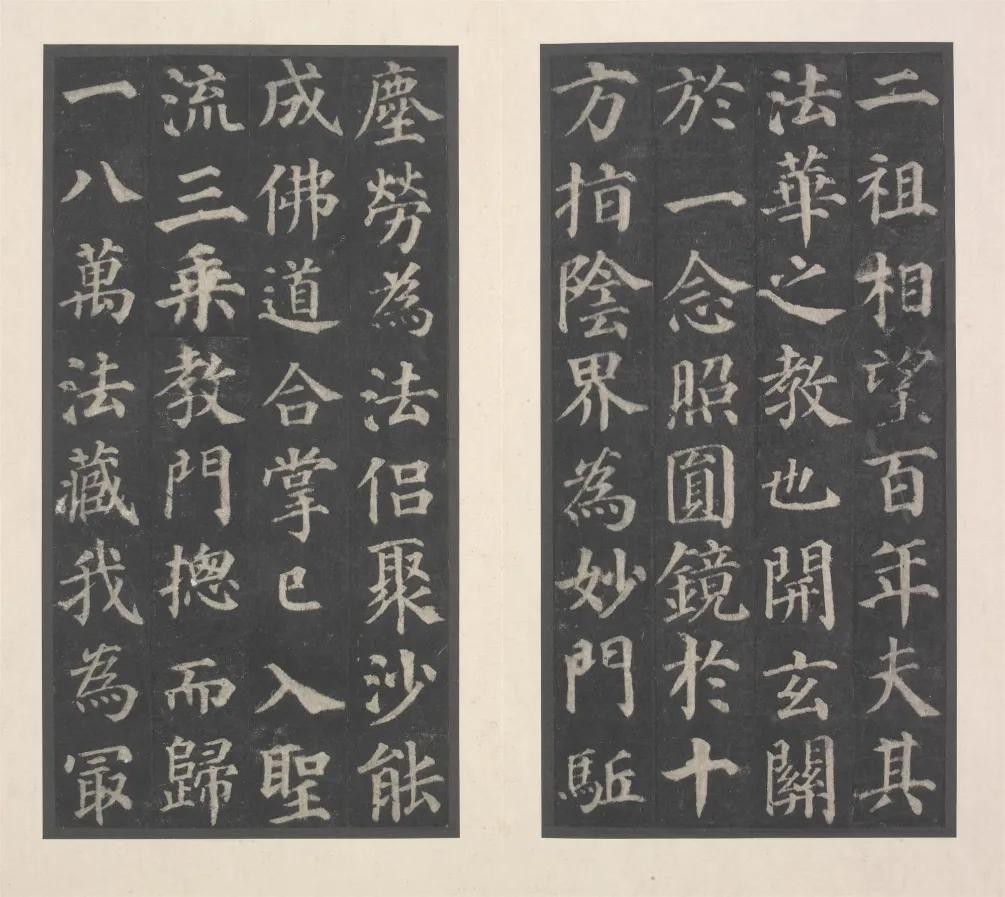 二祖相望百年夫其
法華之教也開玄關
於一念照圎鏡於十
方指陰界為妙門駈
塵勞為法侶聚沙能
成佛道合掌已入聖
流三乘教門揔而歸
一八萬法藏我為冣